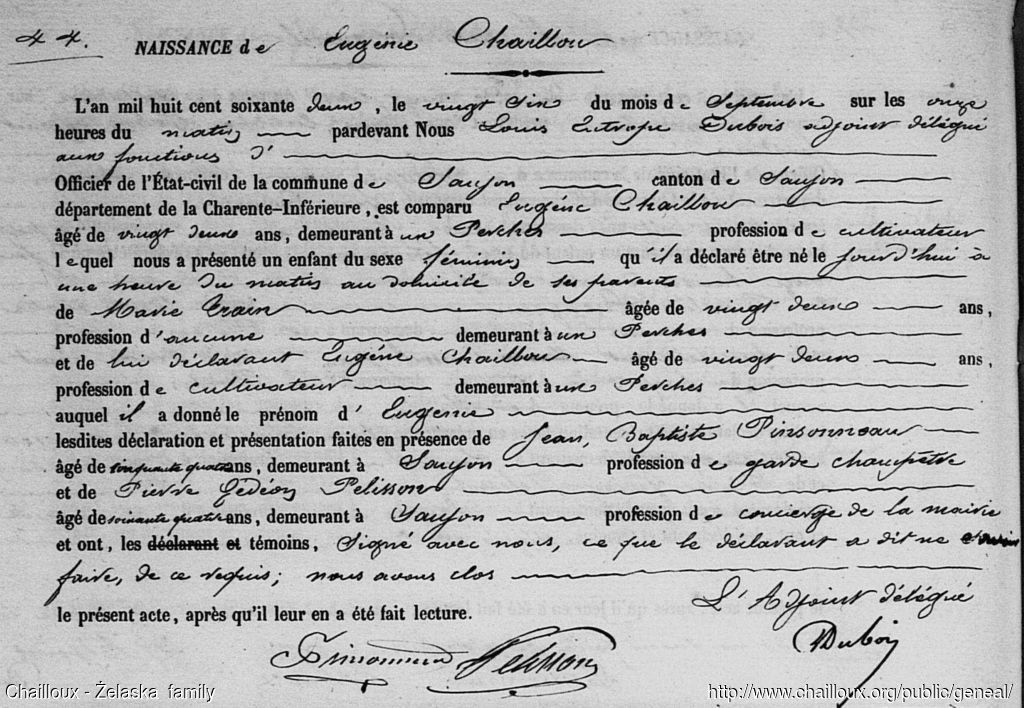 44. NAISSANCE de Eugénie Chaillou
L'an mil huit cent soixante deux, le vingt six du mois de Septembre sur les onze
heures du matin pardevant Nous Louis Eutrope Dubois adjoint délégué
aux fonctions d'
Officier de l'État-civil de la commune de Saujon canton de Saujon
département de la Charente-Inférieure, est comparu Eugéne Chaillou
âgé de vingt deux ans, demeurant à aux Perches profession de cultivateur
lequel nous a présenté un enfant du sexe féminin qu'il a déclaré être né le jourd'hui à
une heure du matin au domicile de ses parents
de Marie Train âgée de vingt deux ans,
profession d'aucune demeurant à aux Perches
et de lui déclarant Eugéne Chaillou âgé de vingt deux ans,
profession de cultivateur demeurant à aux Perches
auquel il a donné le prénom d'Eugénie
lesdites déclaration et présentation faites en présence de Jean, Baptiste Pinsonneau
âgé de cinquante quatre ans, demeurant à Saujon profession de garde champêtre
et de Pierre Gédéon Pelisson
âgé de soixante quatre ans, demeurant à Saujon profession de concierge de la mairie
et ont, les déclarant et témoins, signé avec nous, ce que le déclarant a dit ne savoir
faire, de ce requis; nous avons clos
le présent acte, après qu'il leur en a été fait lecture.
L'Adjoint délégué
Pinsonneau Pelisson Dubois
Chailloux - Żelaska family http://www.chailloux.org/public/geneal/